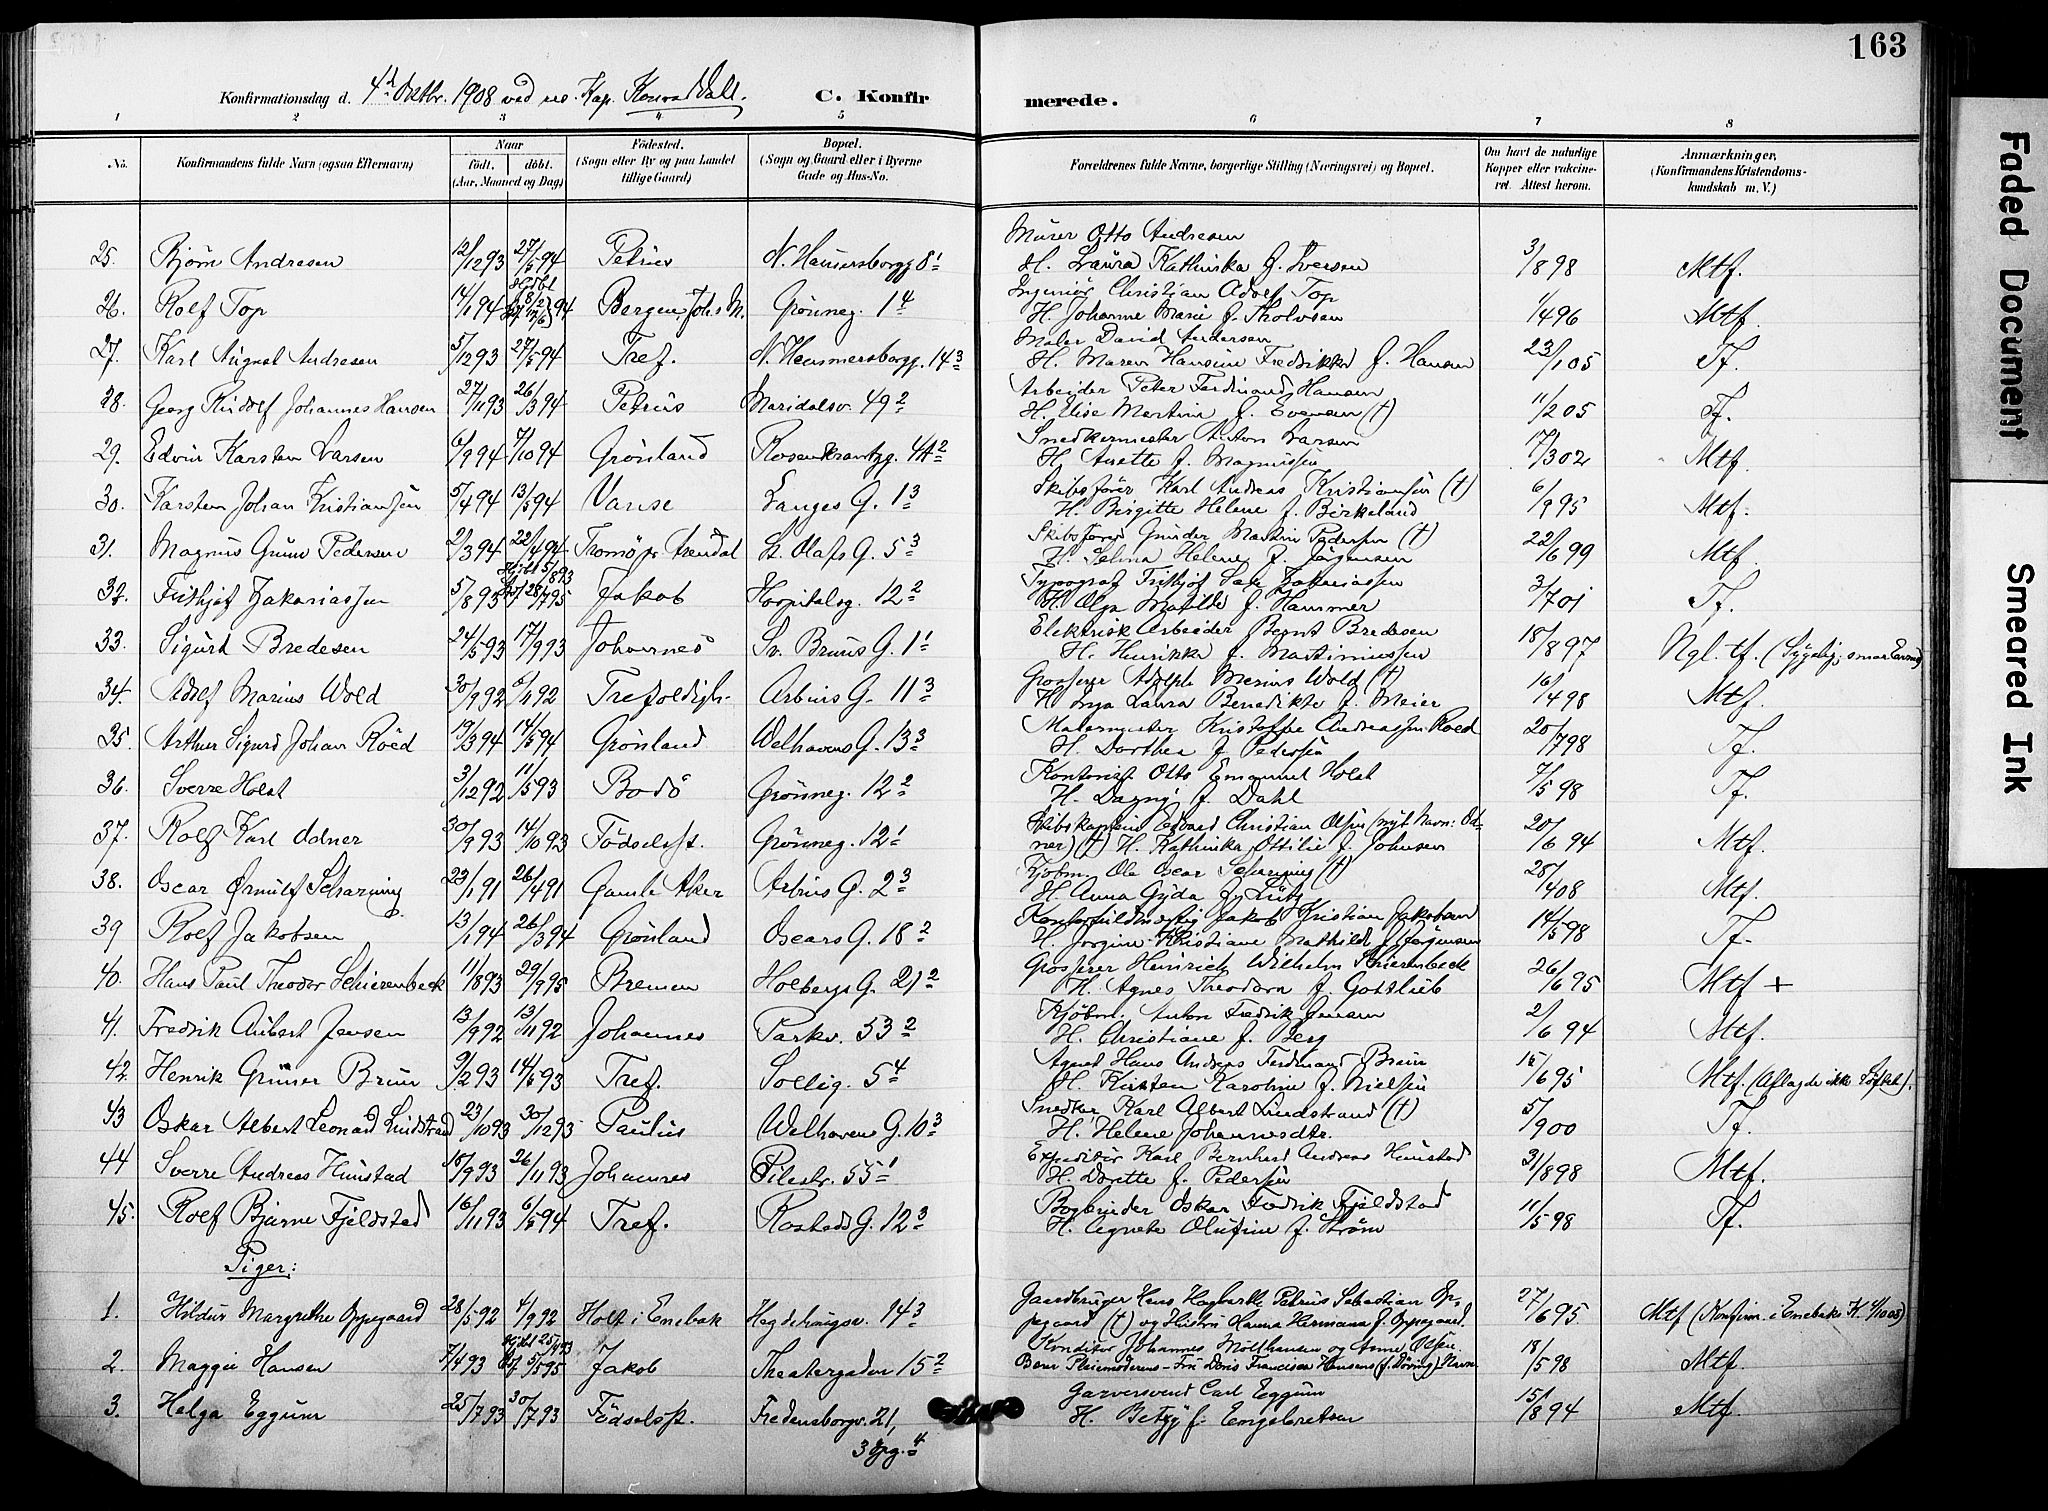 163
Konfirmationsdag d. 4d Oktbr. 1908 ved res. Kap. Konrad Dahl. C. Konfirmerede.
1 2 3 4 5 6 7 8
No. Konfirmandens fulde Navn (ogsaa Efternavn) Naar født. døbt. (Aar, Maaned og Dag) Födested. (Sogn eller By og paa Landet tillige Gaard) Bopæl. (Sogn og Gaard eller i Byerne Gade og Hus-No. Forældrenes fulde Navne, borgerlige Stilling (Næringsvei) og Bopæl. Om havt de naturlige Kopper eller vakcineret. Attest herom. Anmærkninger, (Konfirmandens Kristendomskundskab m. V.)
Murer Otto Andresen
25. Bjørn Andresen 12/12 93 27/5 94 Petrus N. Hammersborgg 8 1 H. Laura Kathinka f. Iversen 3/8 98 Mtf.
Ingeniør Christian Adolf Top
26. Rolf Top 14/1 94 94 Bergen, Johs M. Grønneg. 1 4 H. Johanne Marie f. 1/4 96 Mtf.
Maler David Andersen
27. Karl August Andresen 5/12 93 27/5 94 Tref. N. Hammersborgg. 14 3 H. Maren Hansine Fredrikke f. Hansen 23/1 05 Tf.
Arbeider Peter Ferdinand Hansen
28. Georg Rudolf Johannes Hansen 27/11 93 26/3 94 Petrus Maridalsv. 49 2 H. Elise Martine f. Evensen (†) 11/2 05 Tf.
Snedkermester Anton Larsen
29. Edvin Karsten Larsen 6/9 94 7/10 94 Grønland Rosenkrantzg. 44 2 H. Anette f. Magnussen 17/3 02 Mtf.
Skibsfører Karl Andreas Kristiansen (†)
30. Karsten Johan Kristiansen 5/4 94 13/5 94 Vanse Langes G. 1 3 H. Birgitte Helene f. Birkeland 6/9 95 Mtf.
Skibsfører Gunder Martin Pedersen (†)
31. Magnus Gunn Pedersen 2/3 94 22/4 94 Tromø pr Arendal St. Olafs G. 5 3 H. Selma Helene f. Jørgensen 22/6 99 Mtf.
Hjdbt 5/8 93
Typograf Frithjof Zakariassen
32. Frithjof Zakariassen 5/8 93 28/7 95 Jakob Hospitalsg. 12 2 H. Olga Matilde f. Hammer 3/7 01 Tf.
Elektrisk Arbeider Bernt Bredesen
33. Sigurd Bredesen 24/5 93 17/9 93 Johannes Sv. Bruns G. 1 1 H. Henrikke f. Martiniussen 18/8 97 Ngl. tf.
Grosserer Adolph Marius Wold (†)
34. Adolf Marius Wold 30/9 92 6/11 92 Trefoldigh. Arbins G. 11 3 H. Inga Laura Benedikte f. Meier 16/4 98 Mtf.
Malermester Kristoffer Andreassen Röed
35. Arthur Sigurd Johan Röed 19/3 94 14/5 94 Grønland Welhavens G. 13 3 H. Dorthea f. Pedersen 20/7 98 Tf.
Kontorist Otto Emanuel Holst
36. Sverre Holst 3/12 92 11/5 93 Bodø Grønneg. 12 2 H. Dagny f. Dahl 7/5 98 Tf.
Skibskaptein Edvard Christian Olsen (nyt Navn: Od-
37. Rolf Karl Odner 30/9 93 14/10 93 Födselsst. Grønneg. 12 1 ner) (†) H. Kathinka Ottilie f. Johnsen 20/6 94 Mtf.
Kjøbm. Ole Oscar Scharning (†)
38. Oscar Ørnulf Scharning 23/1 91 26/4 91 Gamle Aker Arbins G. 2 3 H. Anna Gyda f. 28/4 08 Mtf.
Jakob Kristian Jakobsen
39 Rolf Jakobsen 13/1 94 26/3 94 Grønland Oscars G. 18 2 H. Jorgine Kristiane Mathilde f. Jørgensen 14/5 98 Tf.
Grosserer Heinrich Wilhelm Schierenbeck
40. Hans Paul Theodor Schierenbeck 11/8 93 29/9 95 Bremen Holbergs G. 21 2 H. Agnes Theodora f. Gottlieb 26/6 95 Mtf +
Kjøbm. Anton Fredrik Jensen
41. Fredrik Aubert Jensen 13/9 92 13/11 92 Johannes Parkv. 53 2 H. Christiane f. Berg 2/6 94 Mtf.
Agent Hans Andreas Ferdinand Bruun
42. Henrik Grüner Bruun 9/2 93 14/5 93 Tref. Sollig. 5 4 H. Kirsten Karoline f. Nielsen 15/6 95 Mtf. (Aflagde ikke Løftet).
Snedker Karl Albert Lindstrand (†)
43 Oskar Albert Leonard Lindstrand 23/10 93 30/12 93 Paulus Welhavens G. 10 3 H. Helene Johannesdtr. 5/9 00 Tf.
Expeditør Karl Bernhard Andreas Hunstad
44 Sverre Andreas Hunstad 18/9 93 26/11 93 Johannes Pilestr. 55 1 H. Dorette f. Pedersen 31/8 98 Mtf.
Bogbinder Oskar Fredrik Fjeldstad
45. Rolf Bjarne Fjeldstad 16/11 93 6/5 94 Tref. Rostads G. 12 3 H. Agnete Olufine f. Strøm 11/5 98 Tf.
Piger:
Gaardbruger Hans Hagbarth Petrus Sebastian Op-
1. Hildur Margrethe Oppegaard 28/5 92 4/9 92 Holt i Enebak Hegdehaugsv. 14 3 pegaard (†) og Hustru Hanna Hermana f. Oppegaard. 27/6 95 Mtf (Konfirm. i Enebaks K. 4/10 08)
Konditor Johannes Mølthausen og Anne Olsen.
2. Maggie Hansen 7/4 93 5/5 95 Jakob Theatergaden 15 2 Bærer Pleiemoderens - Fru Doris Francisca Hansens (f. Döring) Navn 18/5 98 Mtf.
Garversvend Carl Eggum
3. Helga Eggum 25/7 93 30/7 93 Födselsst. Fredensborgv. 21, H. Betzy f. Engebretsen 15/8 94 Mtf.
3 Opg. 4
Faded Document
Smeared Ink